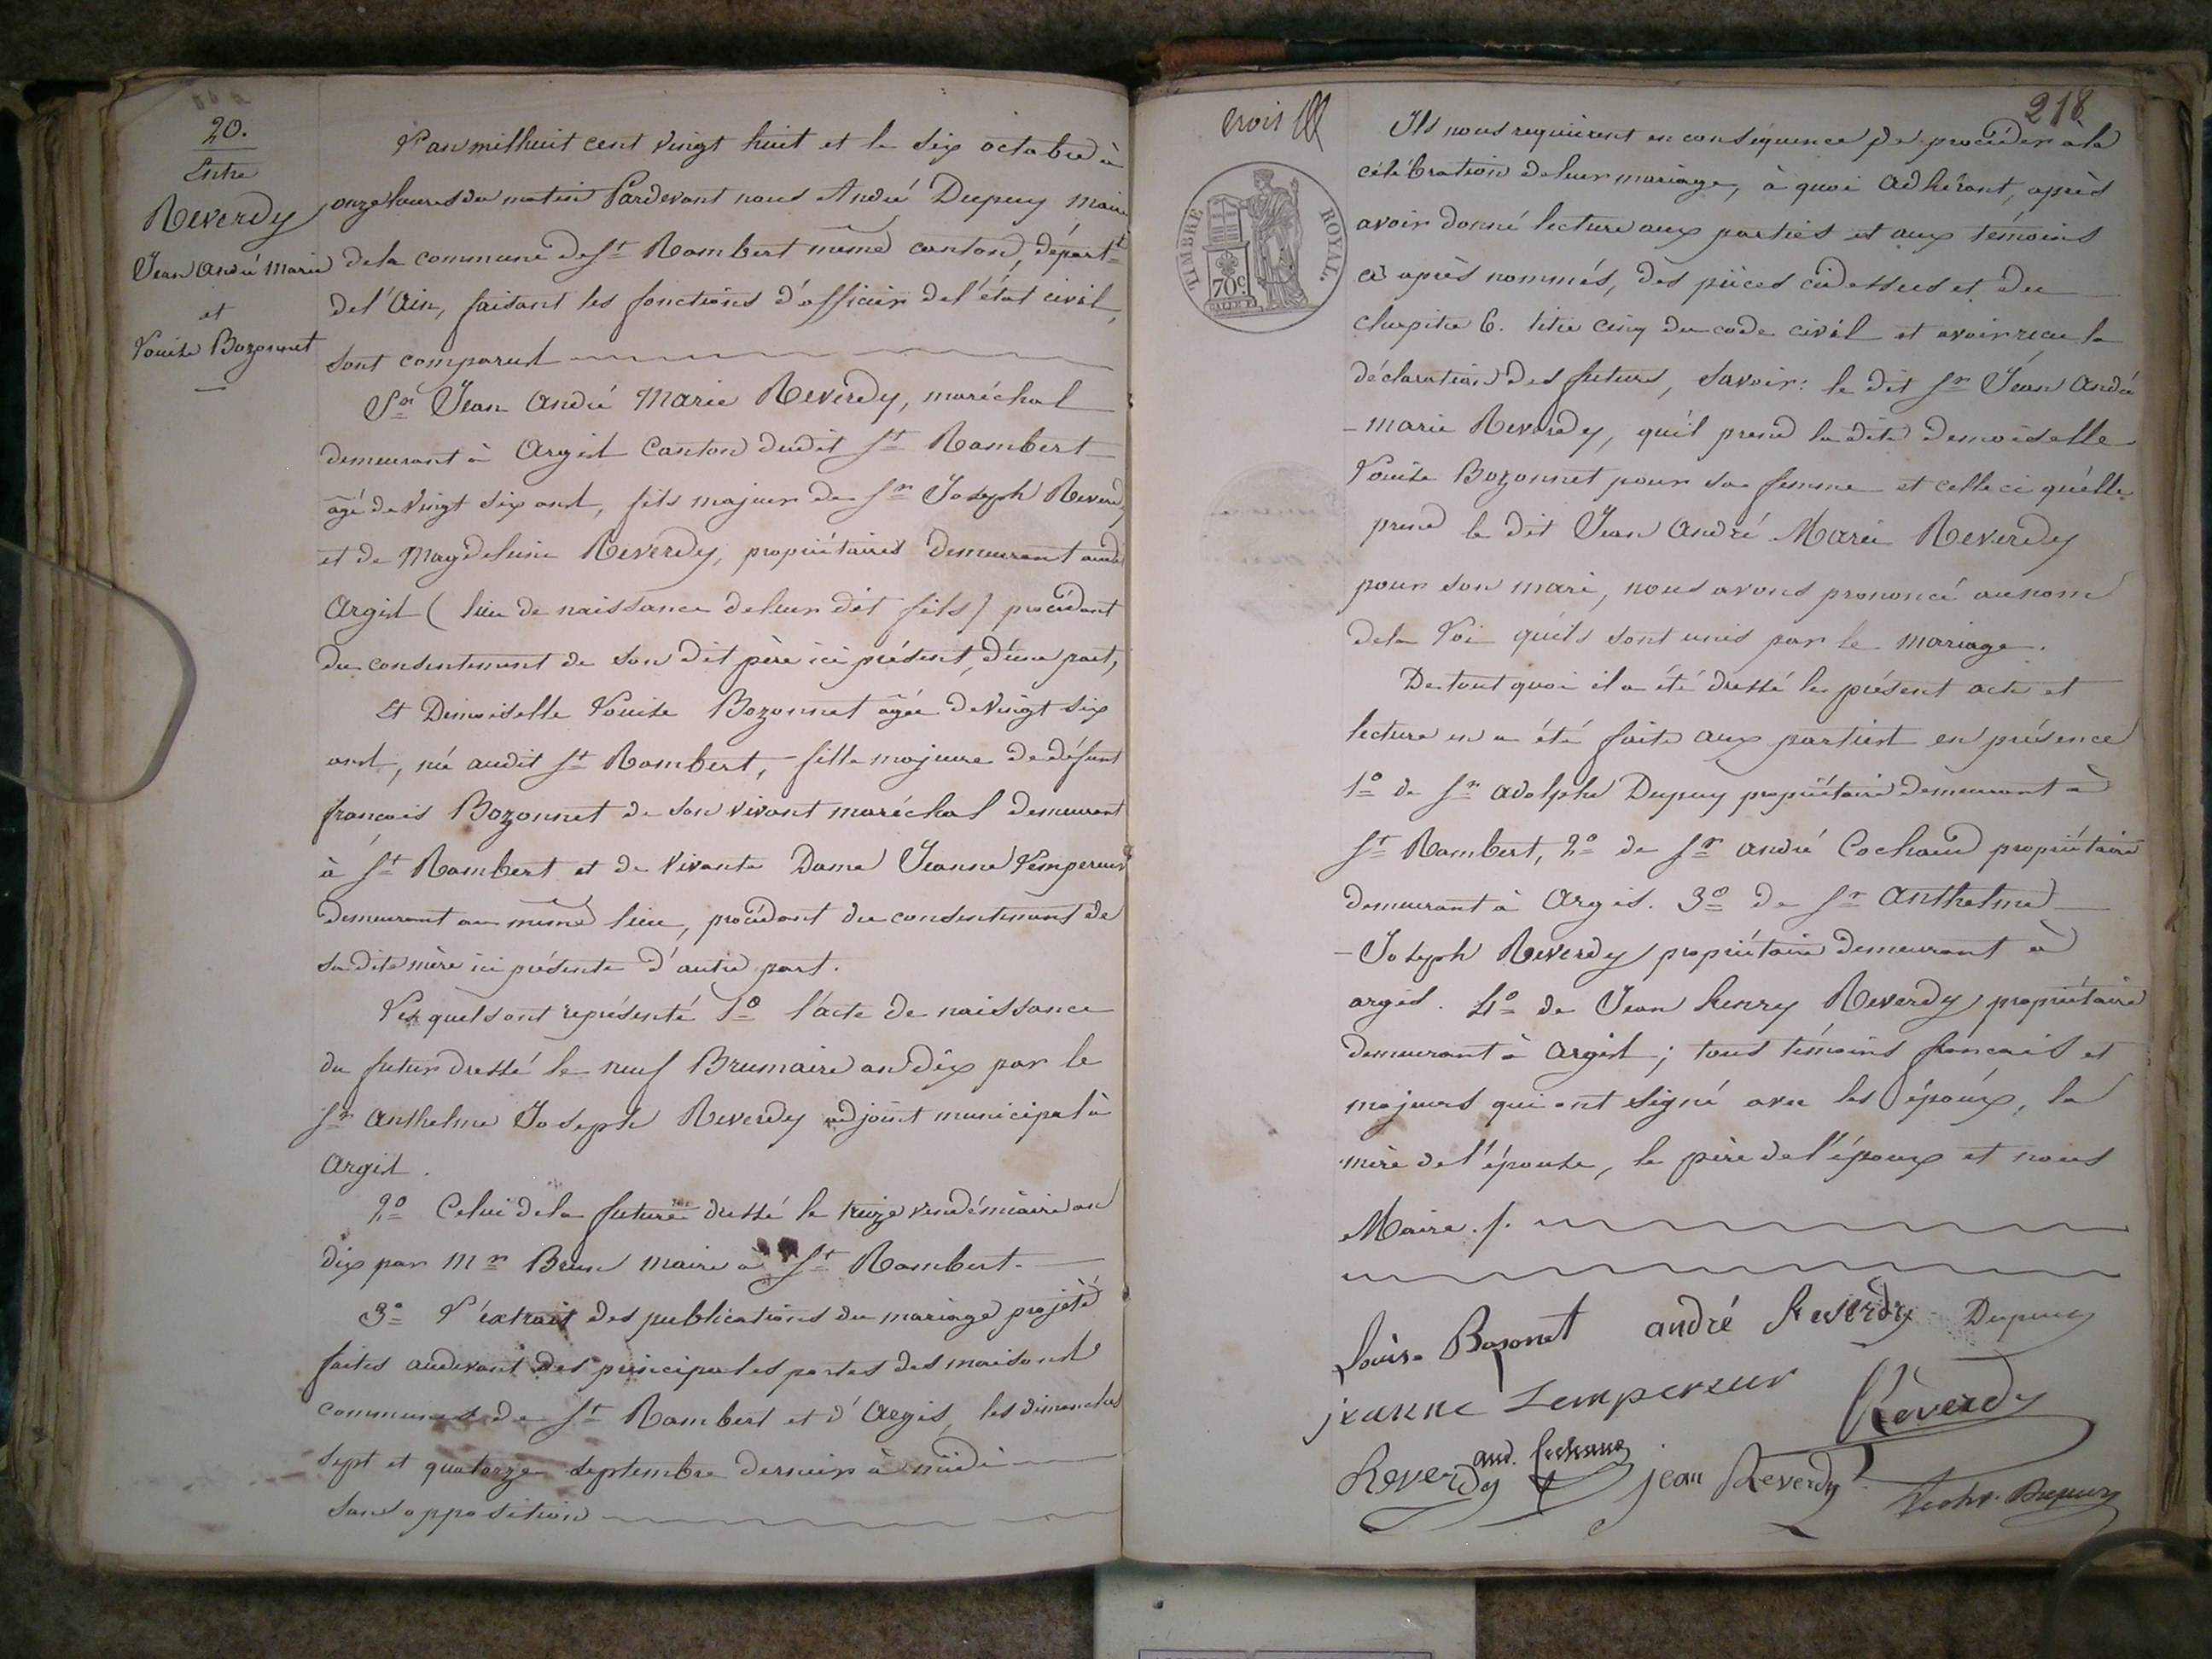 20.
Entre
Reverdy
Jean André Marie
et
Louise Bozonnet
L'an mil huit cent vingt huit et le six octobre à
onze heures du matin Pardevant nous André Dupuy maire
de la commune de St Rambert même canton, départt
de l'Ain, faisant les fonctions d'officier de l'état civil,
sont comparus
Sr Jean André Marie Reverdy, maréchal
demeurant à Argis Canton dudit St Rambert
âgé de vingt six ans, fils majeur de Sr Joseph Reverdy
et de Magdeleine Reverdy, propriétaires demeurant audit
Argis (lieu de naissance de leur dit fils) procédant
du consentement de son dit père ici présent, d'une part,
Et Demoiselle Louise Bozonnet âgée de vingt six
ans, née audit St Rambert, fille majeure de défunt
françois Bozonnet de son vivant maréchal demeurant
à St Rambert et de vivante Dame Jeanne Lempereur
demeurant au même lieu, procédant du consentement de
sa dite mère ici présente d'autre part.
Lesquels ont représenté 1o l'acte de naissance
du futur dressé le neuf Brumaire an dix par le
Sr Anthelme Joseph Reverdy adjoint municipal à
Argis.
2o Celui de la future dressé le treize vendémiaire an
dix par Mr Brun maire à St Rambert.
3o L'extrait des publications du mariage projeté
faites audevant des principales portes des maisons
communes de St Rambert et d'Argis, les dimanches
sept et quatorze septembre dernier à midi
sans opposition
218
TIMBRE ROYAL.
70c.
Ils nous requièrent en conséquence de procéder à la
célébration de leur mariage, à quoi adhérant, après
avoir donné lecture aux parties et aux témoins
ci après nommés, des pièces cidessus et du
chapitre 6. titre cinq du code civil et avoir recu la
déclaration des futurs, savoir: le dit Sr Jean André
- marie Reverdy, qu'il prend la dite demoiselle
Louise Bozonnet pour sa femme et celle ci qu'elle
prend le dit Jean André Marie Reverdy
pour son mari, nous avons prononcé au nom
de la Loi qu'ils sont unis par le mariage.
De tout quoi il a été dressé le présent acte et
lecture en a été faite aux parties en présence
1o de Sr Adolphe Dupuy propriétaire demeurant à
St Rambert, 2o de Sr André Cochaud propriétaire
demeurant à Argis. 3o de Sr Anthelme
- Joseph Reverdy propriétaire demeurant à
argis. 4o de Jean henry Reverdy propriétaire
demeurant à Argis; tous témoins français et
majeurs qui ont signé avec les époux, la
mère de l'épouse, le père de l'époux et nous
Maire./.
Louise Bosonet andré Reverdy Dupuy
jeanne Lempereur Réverdy
Reverdy jean Reverdy Dupuy